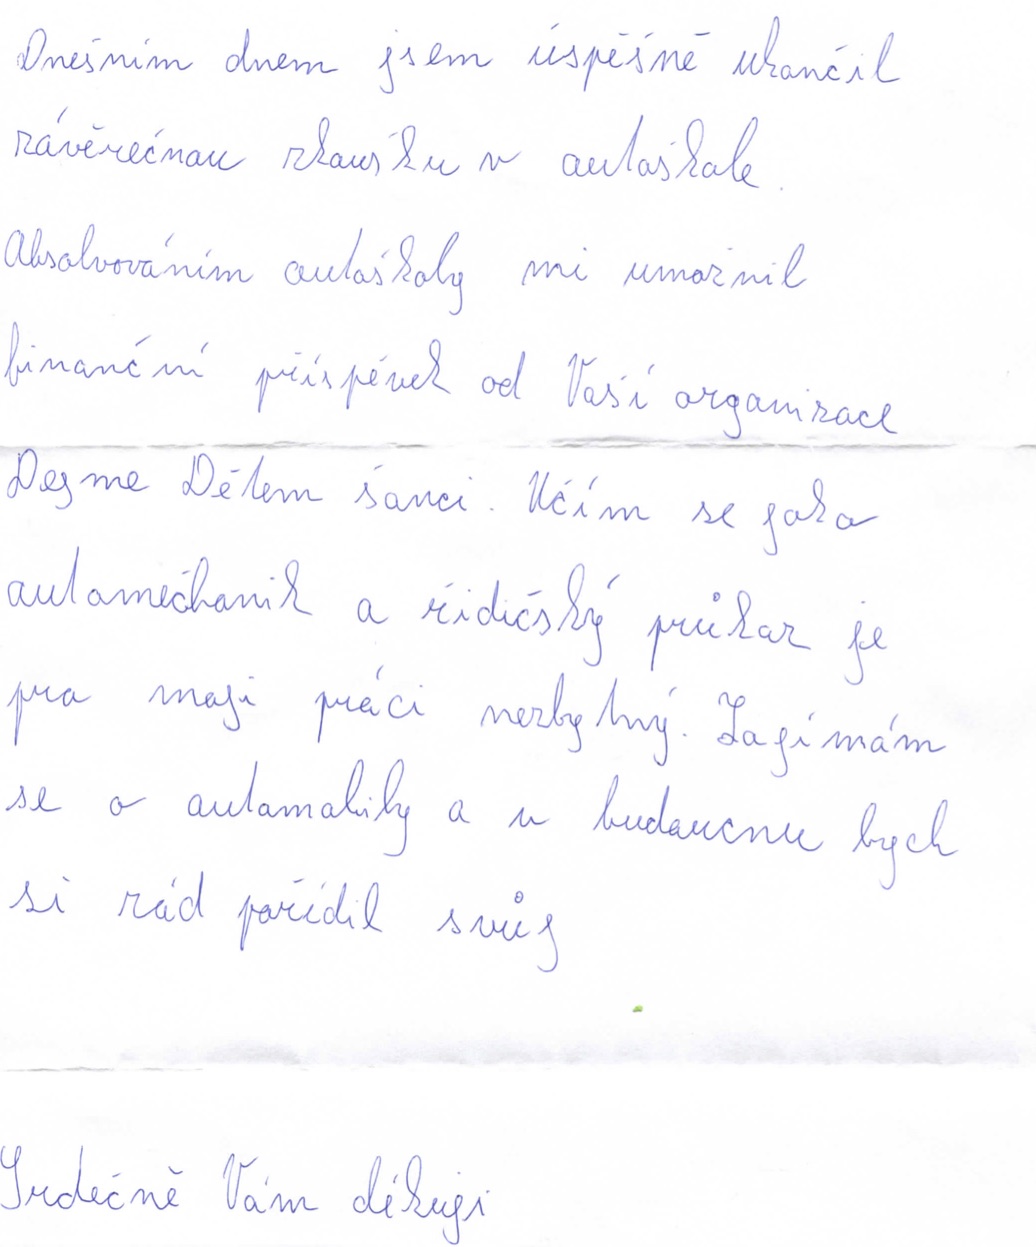 Dnešním dnem jsem úspěšně ukončil
závěrečnou zkoušku v autoškole.
Absolvováním autoškoly mi umoznil
finanční příspěvek od Vaší organizace
Dejme Dětem šanci. Učím se jako
automechanik a řidičský průkaz je
pro moji práci nezbytný. Zajímám
se o automobily a v budoucnu bych
si rád pořídil svůj
Srdečně Vám děkuji